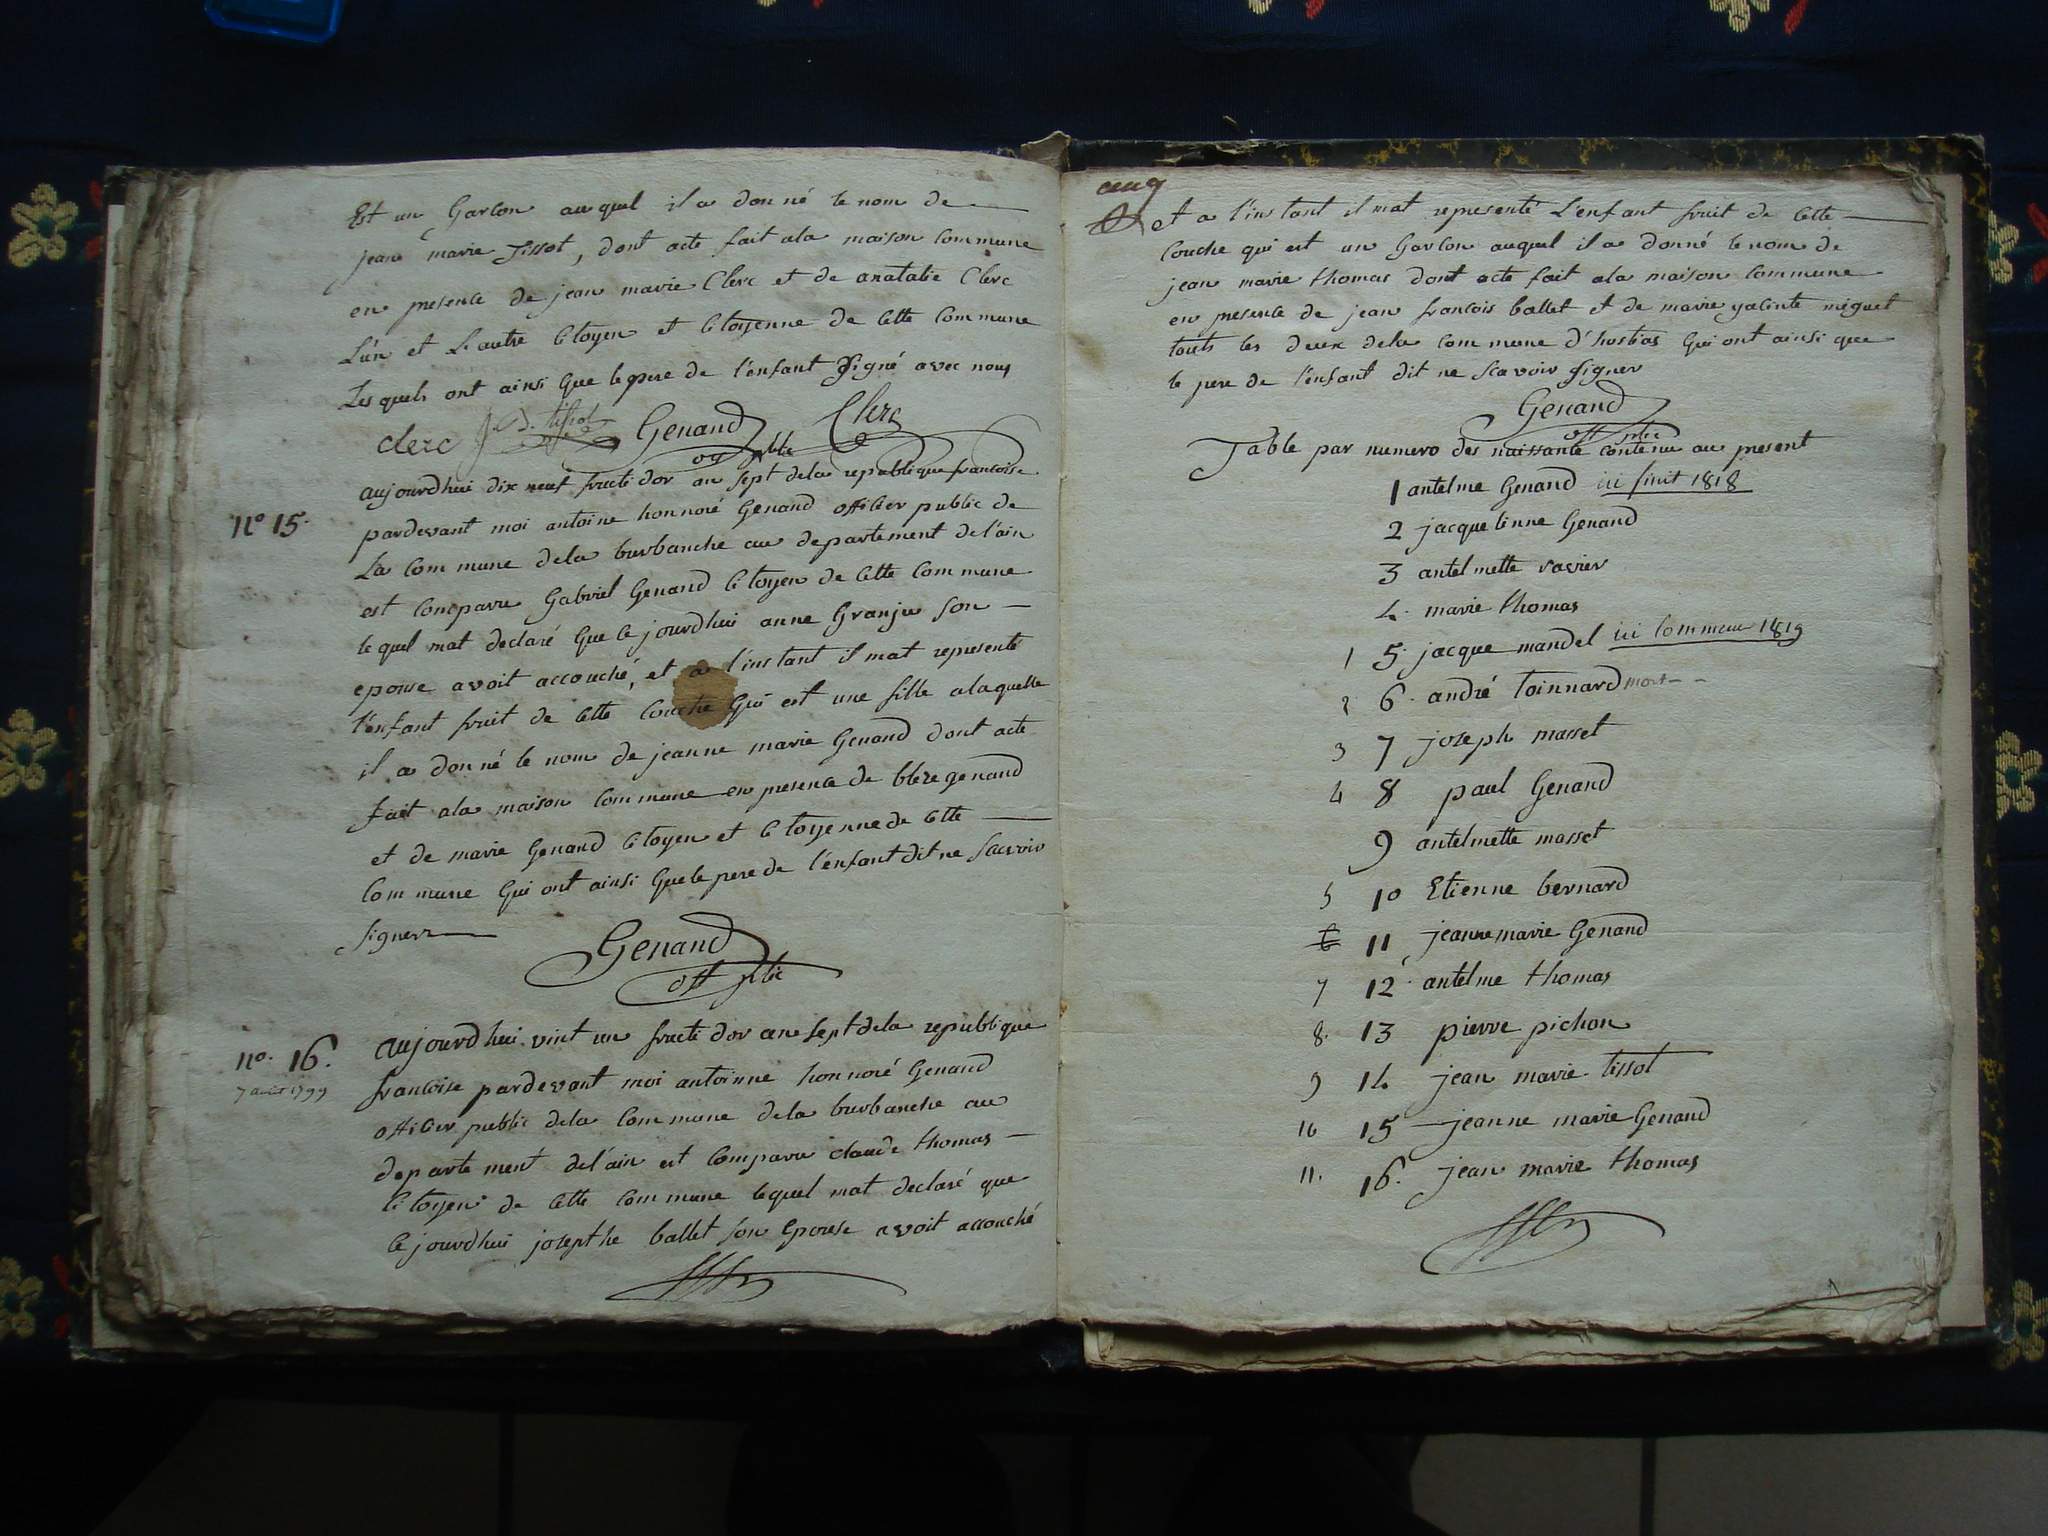 Est un Garcon auquel il a donné le nom de
jean marie Tissot, dont acte fait ala maison Commune
en presence de jean marie Clerc et de anatalie Clerc
L'un et L'autre Citoyen et Citoyenne de Cette Commune
Lesquels ont ainsi Que le pere de l'enfant Signé avec nous
clerc J. D. tissot Genand Clerc
off plic
n° 15.
aujourdhui dix neuf fructidor an sept dela republique francoise
pardevant moi antoine honnoré Genand officier public de
La Commune dela burbanche au departement de l'ain
est Comparu Gabriel Genand Citoyen de Cette Commune
le quel mat declaré Que Ce jourdhui anne Granju son
epouse avoit accouché, et a l'instant il mat representé
l'enfant fruit de Cette Couche Qui est une fille alaquelle
il a donné le nom de jeanne marie Genand dont acte
fait ala maison Commune en presence de bleze genand
et de marie Genand Citoyen et Citoyenne de Cette
Commune Qui ont ainsi Que le pere de l'enfant dit ne Scavoir
Signer
Genand
off plic
n°. 16.
7 aout 1799
aujourdhui vint un fructidor an sept dela republique
francoise pardevant moi antoinne honnoré Genand
officier public dela Commune dela burbanche au
departement de l'ain est Comparu claude thomas
Citoyen de Cette Commune lequel mat declaré que
Ce jourdhui josepthe ballet son Epouse avoit accouché
et a l'instant il mat representé L'enfant fruit de Cette
Couche qui est un Garcon auquel il a donné le nom de
jean marie thomas dont acte fait ala maison Commune
en presence de jean francois ballet et de marie yacinte miguet
touts les deux dela Commune d'hostias Qui ont ainsi que
le pere de l'enfant dit ne Scavoir Signer
Genand
off plic
Table par numero des naissance contenu au present
1 antelme Genand ici finit 1818
2 jacquelinne Genand
3 antelmette ravier
4. marie thomas
1 5. jacque mandel ici Commence 1819
2 6. andré toinnard mort
3 7 joseph masset
4 8 paul Genand
9 antelmette masset
5 10 Etienne bernard
6 11 jeanne marie Genand
7 12 antelme thomas
8. 13 pierre pichon
9 14 jean marie tissot
10 15 jeanne marie Genand
11. 16. jean marie thomas